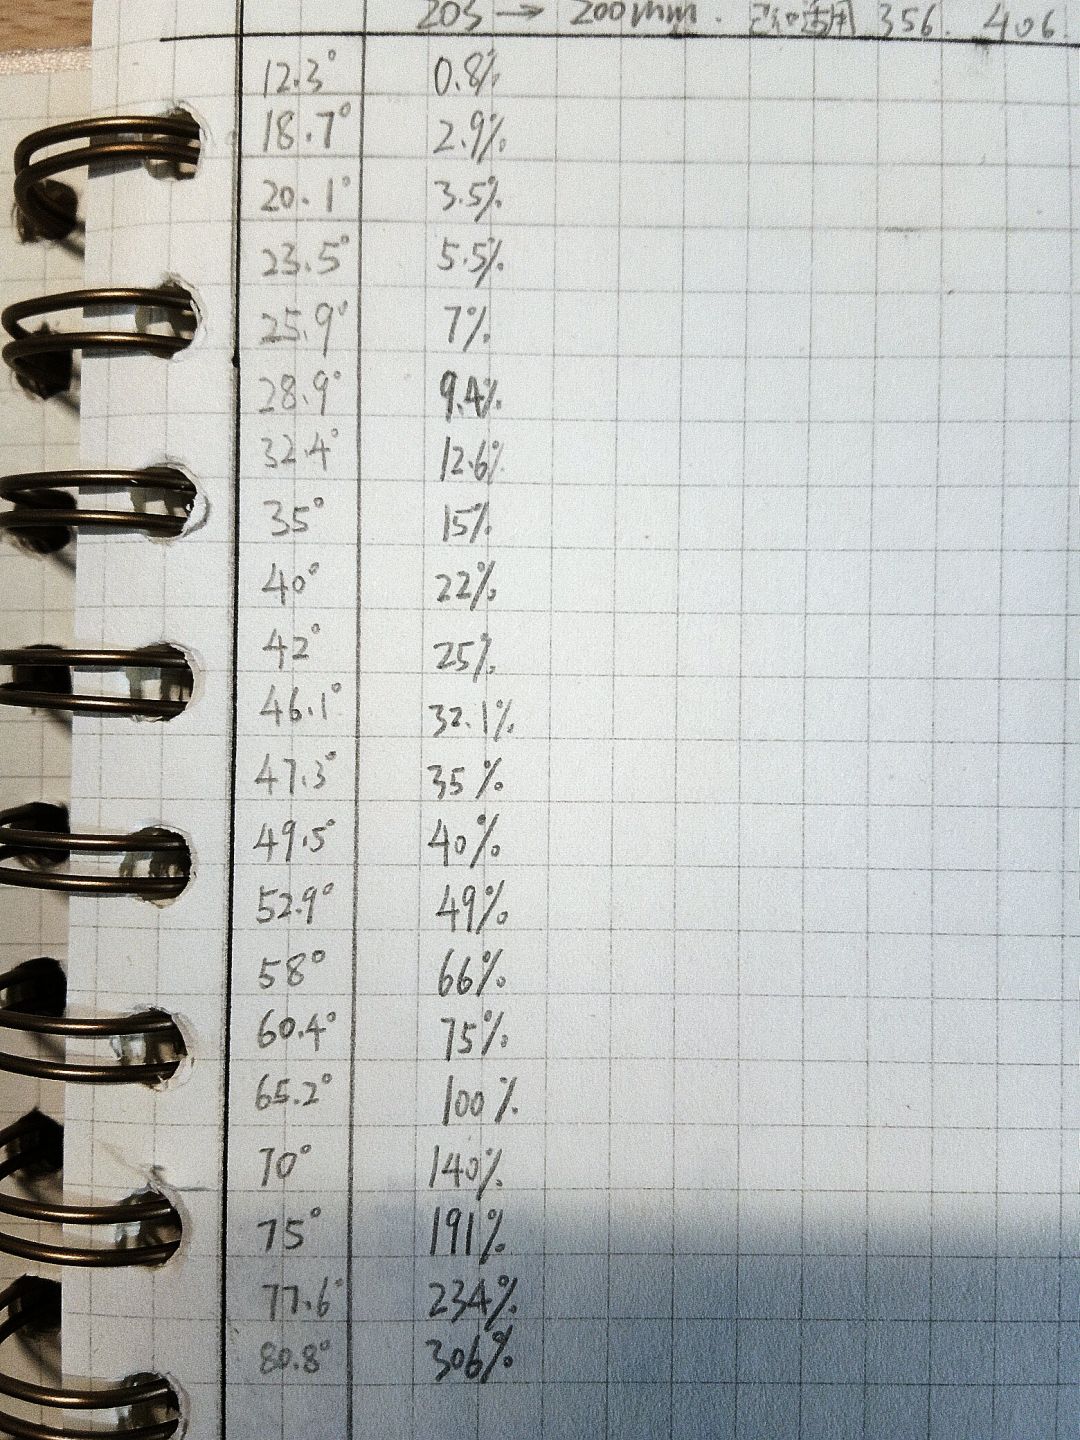 20S → 200mm. 已知适用 356. 406.
12.3° 0.8%
18.7° 2.9%
20.1° 3.5%
23.5° 5.5%
25.9° 7%
28.9° 9.4%
32.4° 12.6%
35° 15%
40° 22%
42° 25%
46.1° 32.1%
47.3° 35%
49.5° 40%
52.9° 49%
58° 66%
60.4° 75%
65.2° 100%
70° 140%
75° 191%
77.6° 234%
80.8° 306%